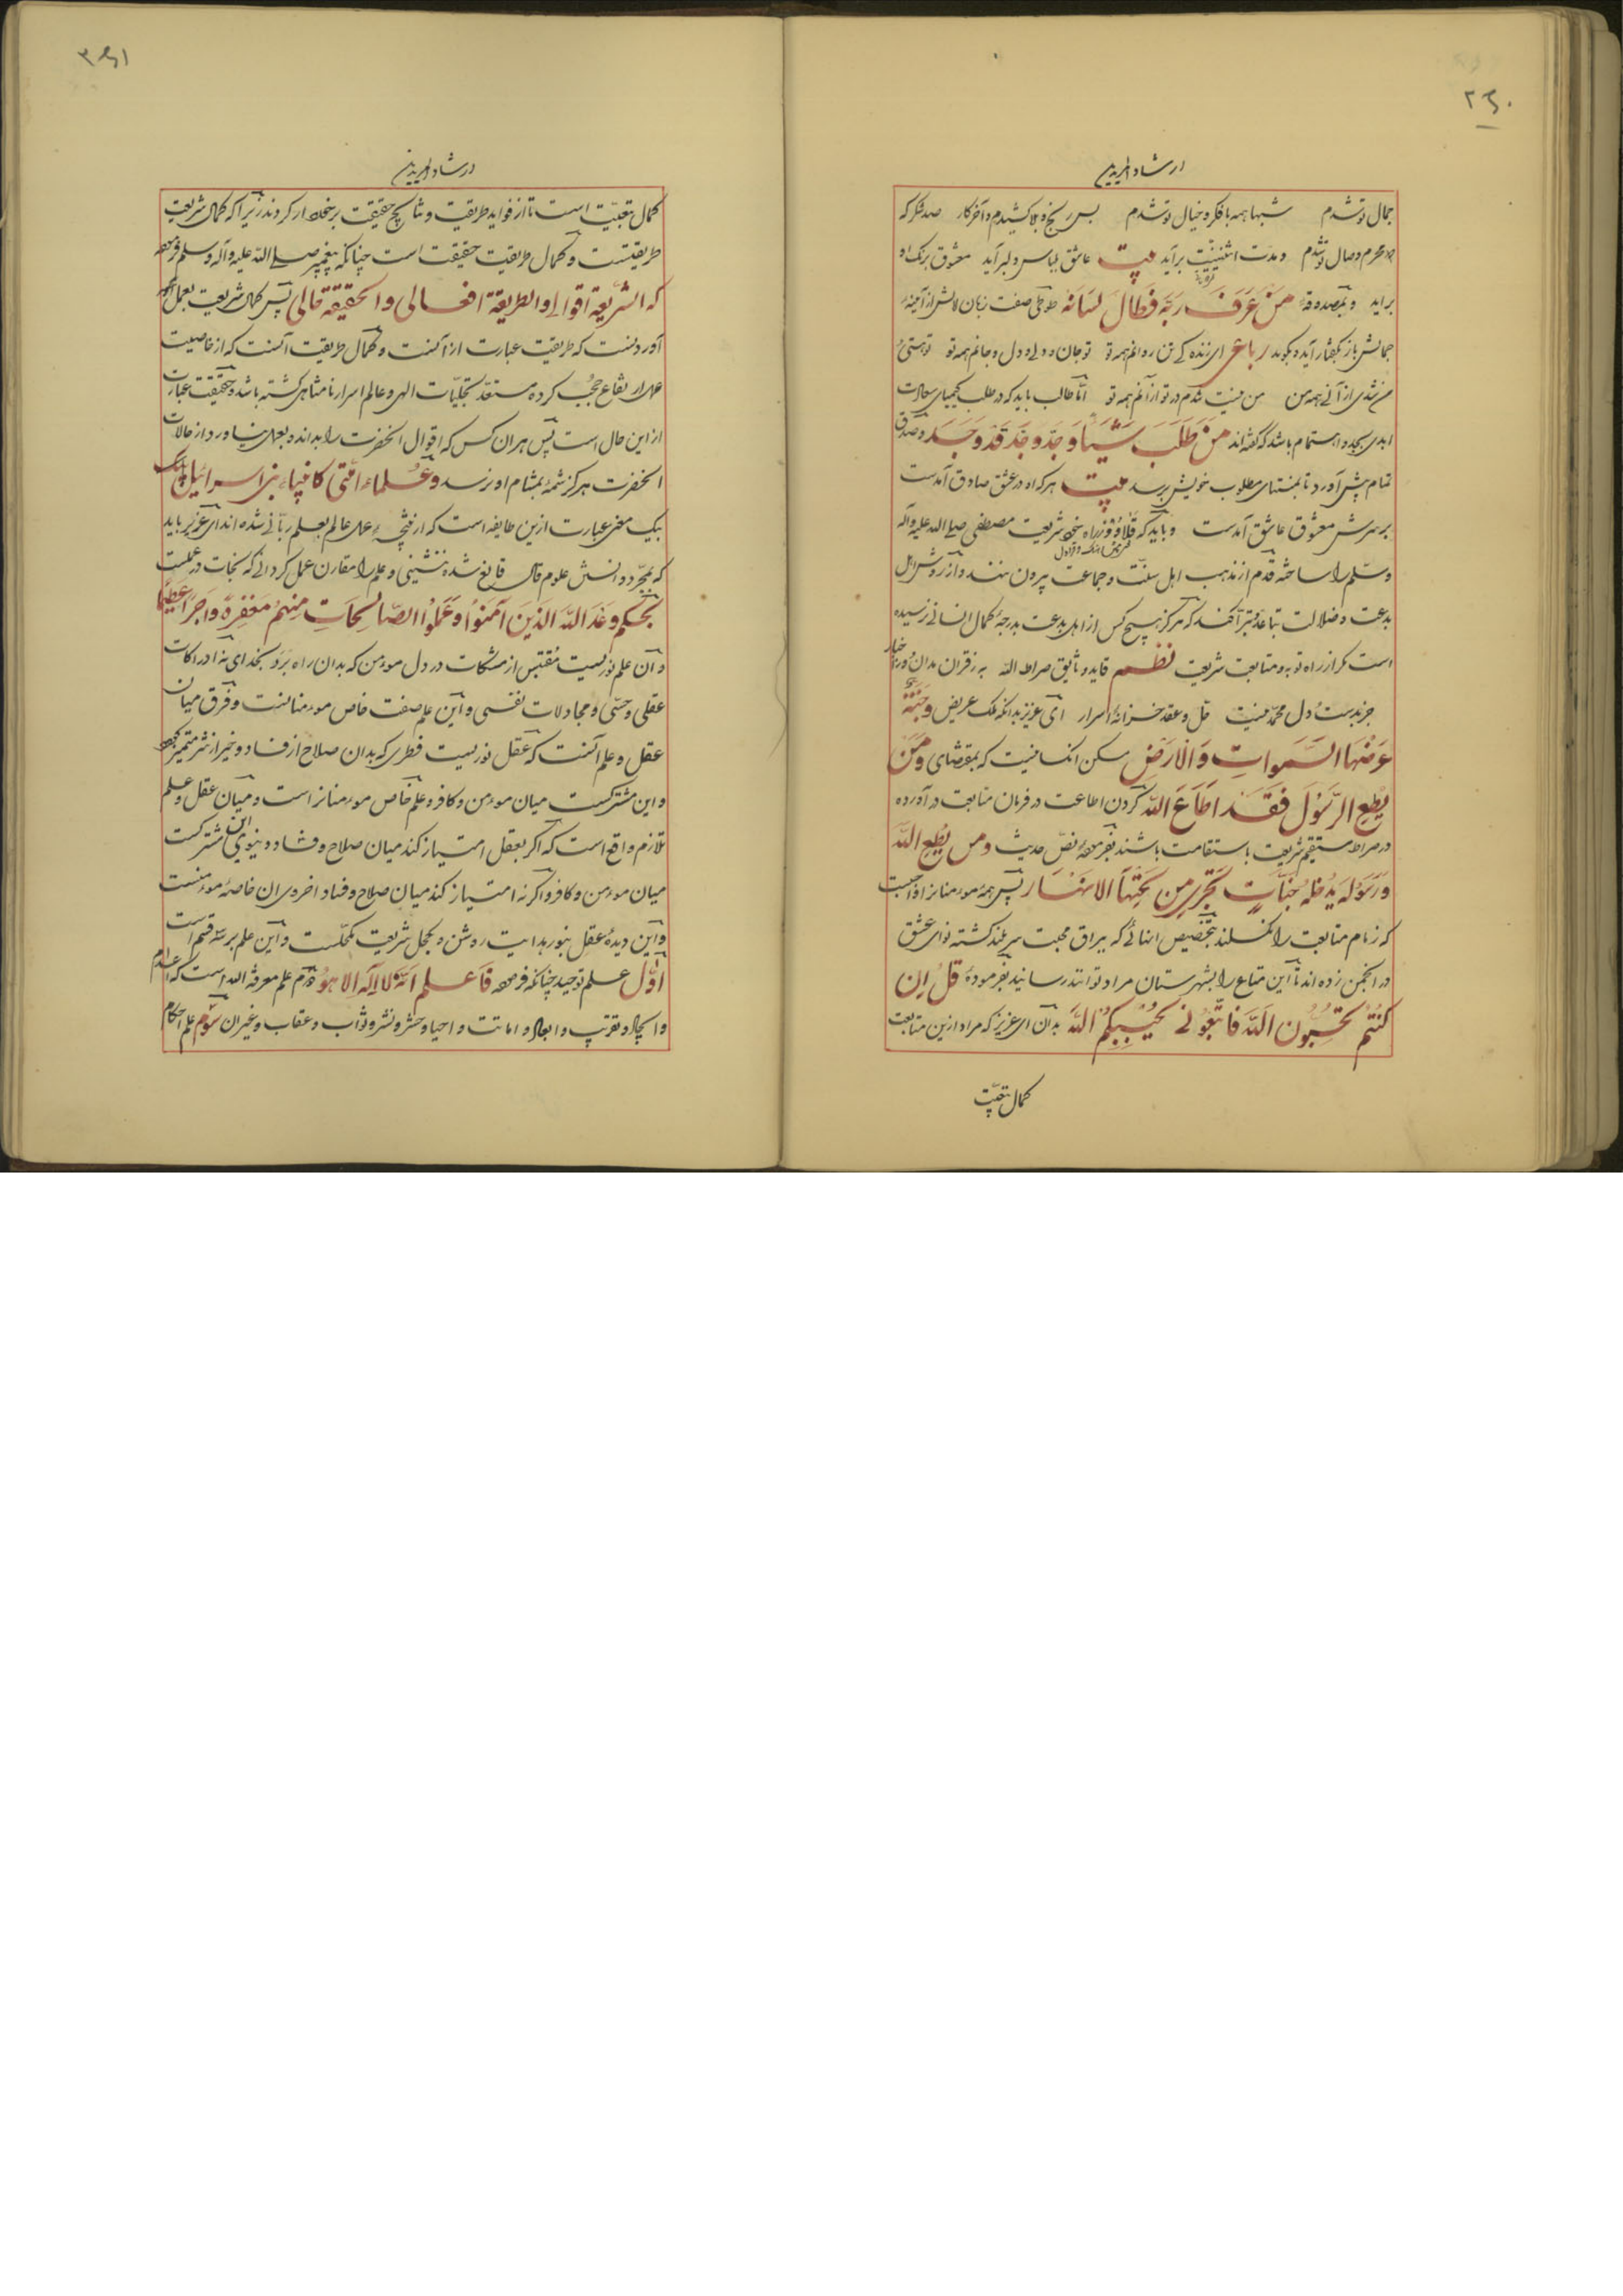 ۲۶۰
ارشاد المریدین
جمال تو شدم شبها همه با فکر و خیال تو شدم بس رنج و بلا کشیدم و آخر کار صد شکر که
محرم وصال تو شدم وحدت اثنینیت برآید بیت عاشق بلباس دلبر آید معشوق برنک او
برآید و بمصدوقهٔ مَنْ عَرَفَ رَبَّه فَطَالَ لِسَانَهُ طوطی صفت زبان لالش از آیینهٔ
جمالش باز بکفتار آید و بکوید رباعی ای زنده کن تن و روانم همه تو تو جان و دلی و دل و جانم همه تو تو هستی
من شدی از آنی همه من من نیست شدم در تو از آنم همه تو امّا طالب باید که در طلب کیمیای سعادت
ابدی بجد و اهتمام باشد که کفته‌اند مَنْ طَلَبَ شَیْئًا وَجَدَّ وَجَدَ قَدْ وَجَدَ و صدق
تمام پیش آورد تا بمنتهای مطلوب خویش برسد بیت هر که او در عشق صادق آمدست
بر سرش معشوق عاشق آمدست و باید که قلاووز راه خود شریعت مصطفی صلی الله علیه و آله
و سلّم را ساخته قدم از مذهب اهل سنّت و جماعت بیرون ننهد و از روش اهل
بدعت و ضلالت تباعد و تبرّا کند که هرکز هیچ کس از اهل بدعت بدرجهٔ کمال انسانی نرسیده
است مکر از راه توبه و متابعت شریعت نظم قاید و ثایق صراط الله به ز قرآن مدان و ز اخبار
جز بدست دل محمّد نیست حلّ و عقد خزانهٔ اسرار ای عزیز بدانکه ملک عریض وَجَنَّةٍ
عَرْضُهَا السَّمَواتِ وَالْاَرْضِ مسکن انکسانیست که بمقتضای وَمَنْ
یُطِعِ الرَّسُوْلَ فَقَدْ اَطَاعَ اللّه کردن اطاعت در فرمان متابعت در آورده
در صراط مستقیم شریعت با استقامت باشند بفرمودهٔ نصّ حدیث ومن یُطِعِ اللّه
وَرَسُوْلَه یُدْخِلْهُ جَنَّاتٍ تَجْرِی مِن تَحْتِهَا الانْهَار پس همه مؤمنانرا واجبست
که زمام متابعت را نکسلند بتخصیص انهائی که بیراق محبت سربلند کشته نوای عشق
در انجمن زده‌اند تا این متاع را بشهرستان مراد توانند رسانید بفرمودهٔ قُلْ اِن
کُنْتُمْ تُحِبُّوْنَ اللّهَ فَاتَّبِعُوْنی یُحْبِبْکُمُ اللّه بدان ای عزیز که مراد ازین متابعت
کمال تبعیّت
۲۶۱
ارشاد المریدین
کمال تبعیّت است تا از فواید طریقت و نتایج حقیقت برخوردار کردند زیرا که کمال شریعت
طریقتست و کمال طریقت حقیقت است چنانکه پیغمبر صلی الله علیه و آله و سلم فرمود
که الشّریعة اقوالی والطریقة افعالی والحقیقة حالی پس کمال شریعت بعمل
آوردنست که طریقت عبارت از آنست و کمال طریقت آنست که از خاصیت
عمل ارتفاع حجب کرده مستعدّ تجلیّات الهی و عالم اسرار نامتناهی کشته باشد و حقیقت عبارت
از این حال است پس هر آن کس که اقوال انحضرت را بداند و بعمل نیاورد از حالات
انحضرت هرکز شمّهٔ بمشام او نرسد وعُلماء اُمّتی کانبیاءِ بنی اسرائیل
بیک معنی عبارت ازین طایفه است که از نتیجهٔ عمل عالم بعلم ربّانی شده‌اند ای عزیز باید
که بمجرّد دانستن علوم قالی قانع شده ننشینی و علم را مقارن عمل کردانی که نجات در عملست
بحکم وَعَدَ اللّهُ الَّذینَ آمَنُوْا وَعَمِلُوْا الصّالِحَاتِ مِنْهُمْ مَغْفِرَةً وَاَجْرًا عَظِیْمًا
و آن علم نوریست مُقتبس از مشکات در دل مؤمن که بدان راه بَرَد بخدای نه ادراکات
عقلی و حسّی و مجادلات نفسی و این علم صفت خاص مؤمنانست و فرق میان
عقل و علم آنست که عقل نوریست فطری که بدان صلاح از فساد و خیر از شر متمیّز کردد
و این مشترکست میان مؤمن و کافر و علم خاص مؤمنانراست و میان عقل و علم
تلازم واقع است که اکر بعقل امتیاز کند میان صلاح و فساد دنیوی این مشترکست
میان مؤمن و کافر و اکر نه امتیاز کند میان صلاح و فساد اخروی ان خاصهٔ مؤمنست
و این دیدهٔ عقل بنور هدایت روشن و بکحل شریعت مکحّلست و این علم بر سه قسم است
اوّل علم توحید چنانکه فرمود فَاعلم اَنّهُ لا اِلَه اِلا هُوَ دوم علم معرفة الله است که
و ایجاد و تقریب و ابعاد و اماتت و احیا و حشر و نشر و ثواب و عقاب و غیر ان سوّم علم احکام